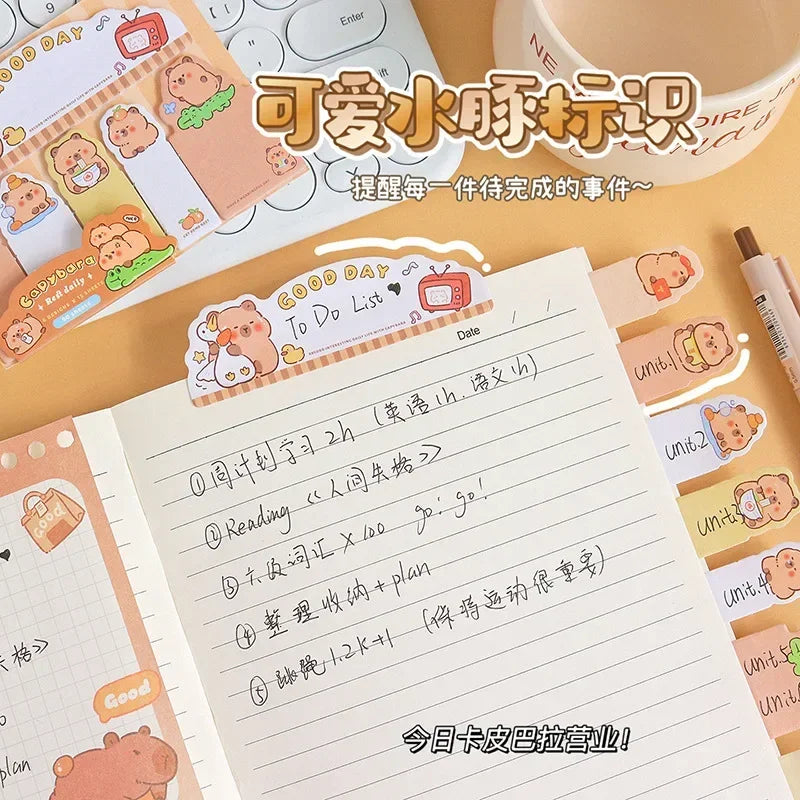 GOOD DAY
Enter
Shift
可爱水豚标识
提醒每一件待完成的事件~
NE
OIRE JA
Capybara
+ Roll daily +
GOOD DAY
To Do List
RECORD INTERESTING DAILY LIFE WITH CAPYBARA
Date / /
①周计划学习 2h (英语1h. 语文1h)
②Reading 《人间失格》
③六级词汇 ×100 go! go!
④整理收纳 + plan
⑤跳绳 1.2K+1 (保持运动很重要)
unit.1
unit.2
unit.3
unit.4
unit.5
unit.
Good
格》
Good
plan
今日卡皮巴拉营业!